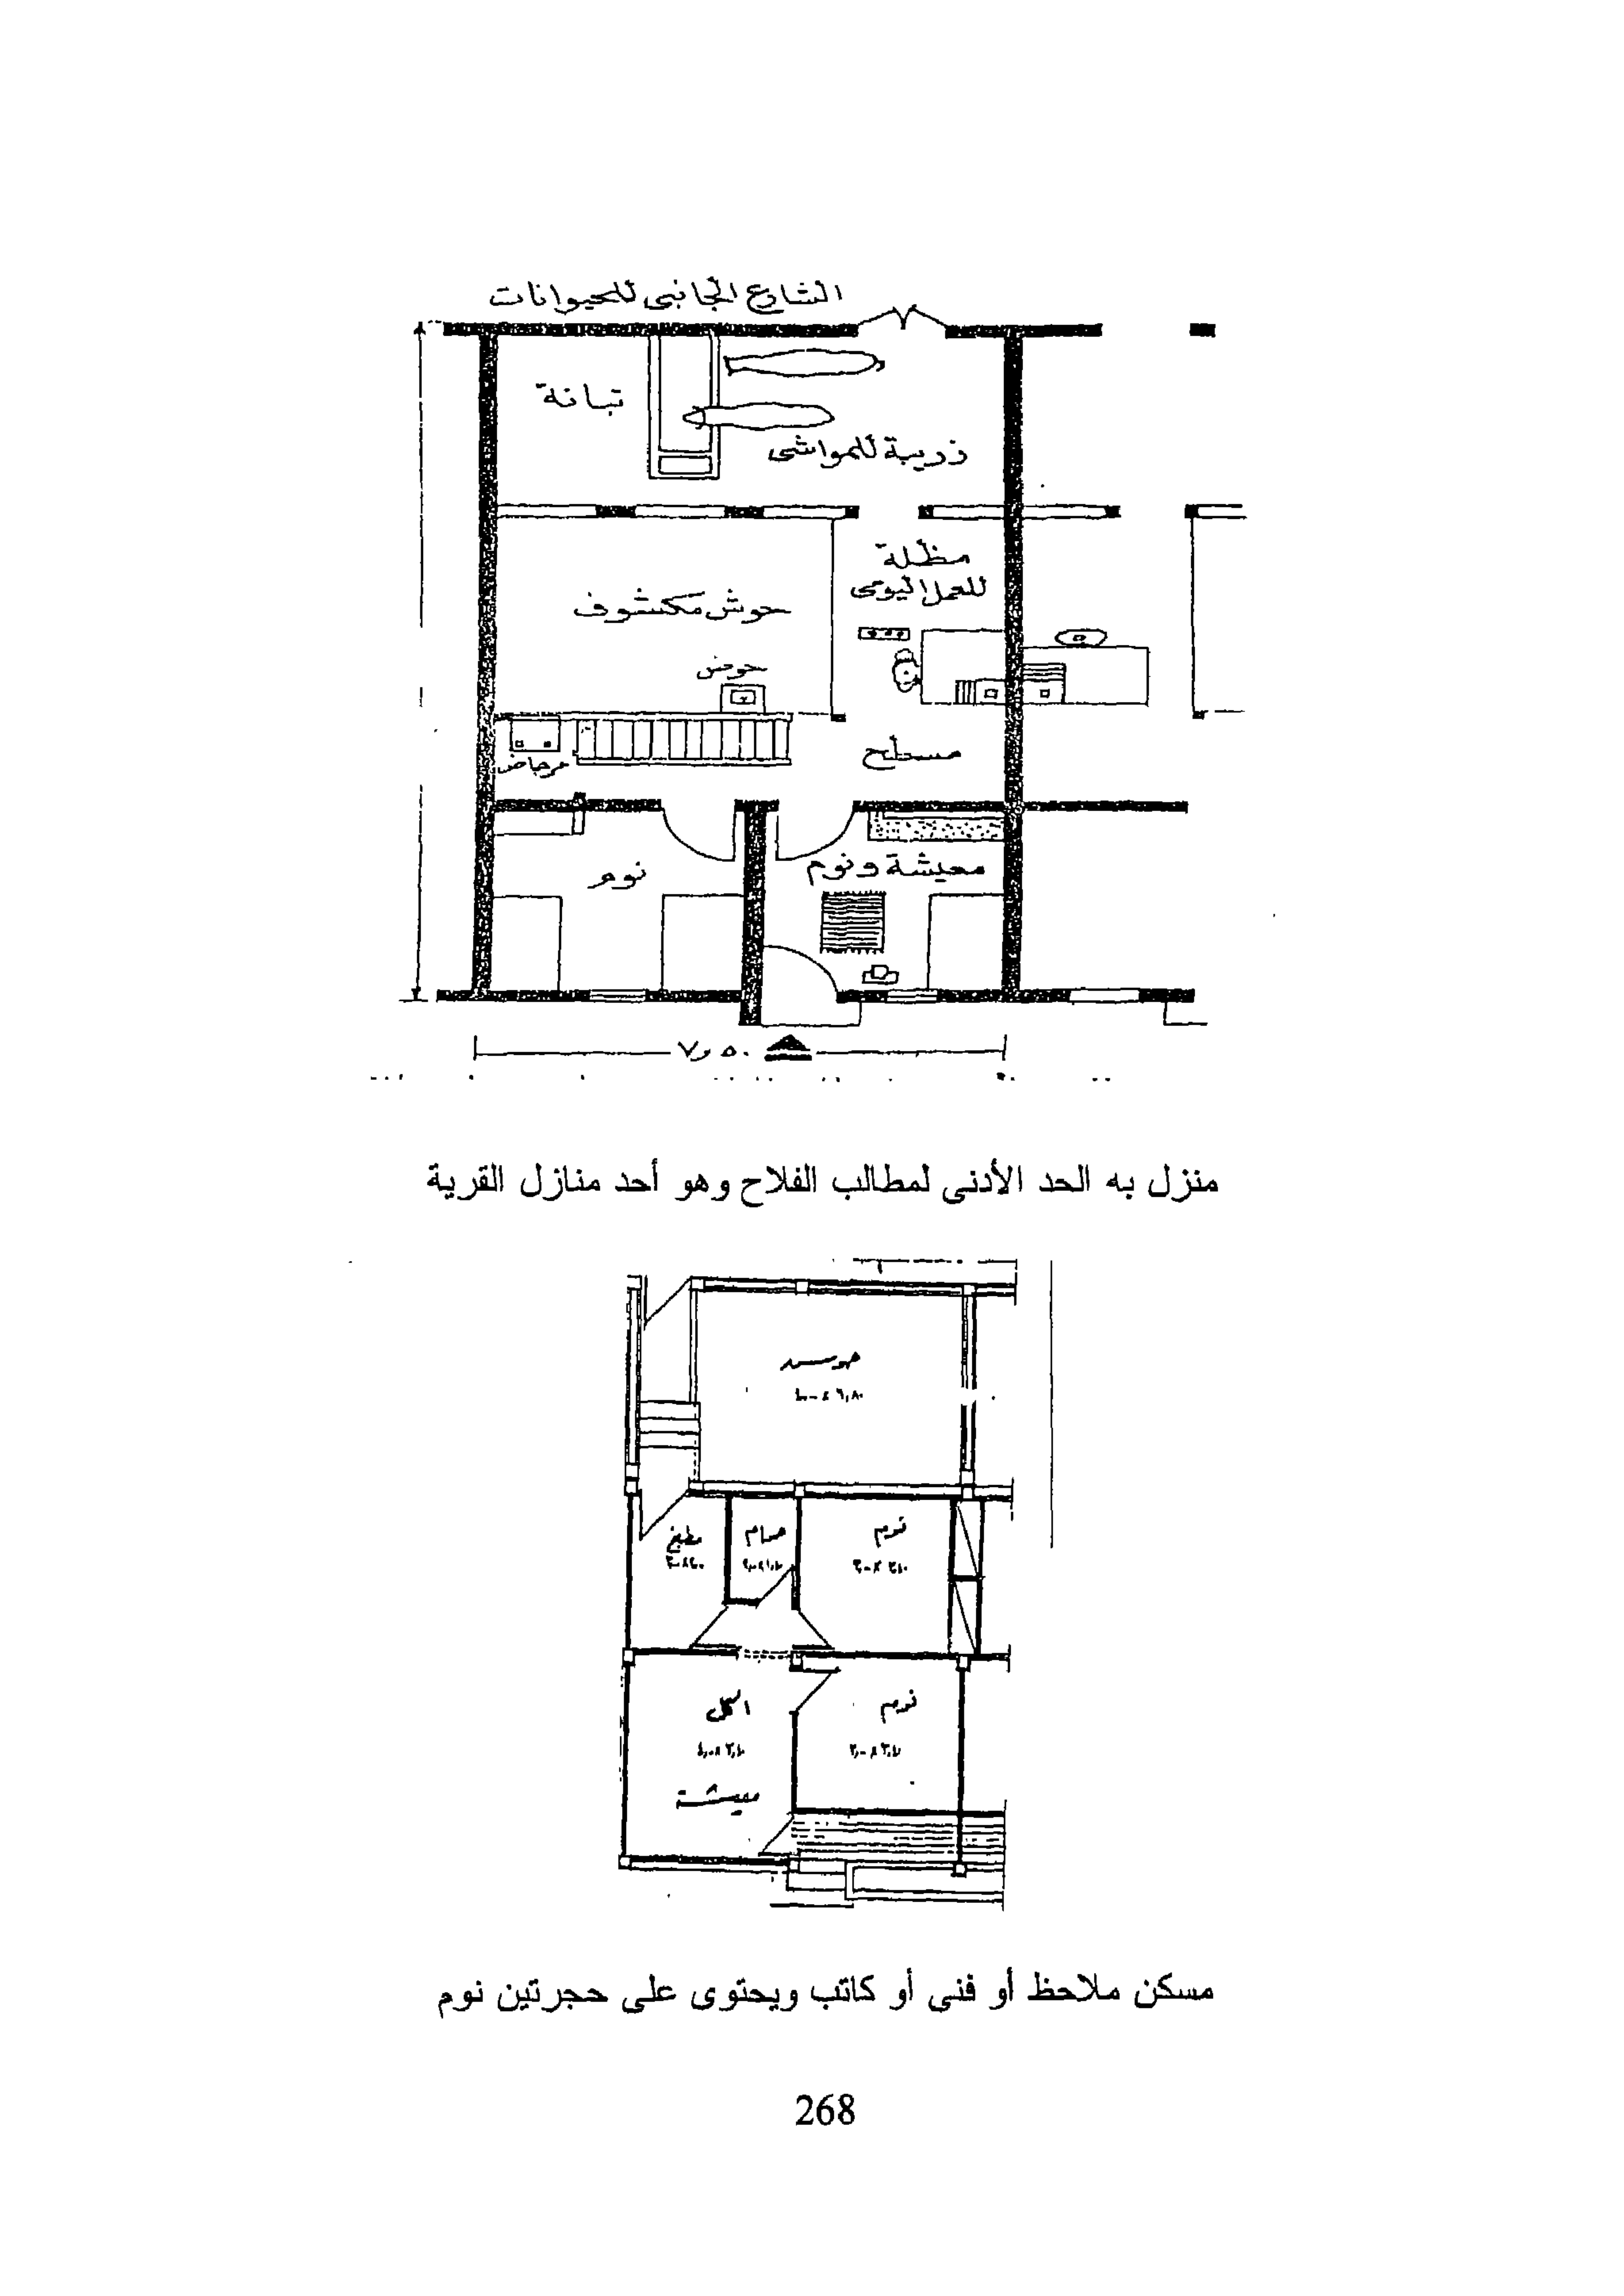 الشارع الجانبى للحيوانات
تبانة
زريبة للمواشى
مظلة
للعمل اليومى
حوش مكشوف
حوض
مسطح
مرحاض
معيشة ونوم
نوم
٧٫٥٠
منزل به الحد الأدنى لمطالب الفلاح وهو أحد منازل القرية
حوش
نوم
حمام
مطبخ
نوم
اكل
معيشة
مسكن ملاحظ أو فنى أو كاتب ويحتوى على حجرتين نوم
268